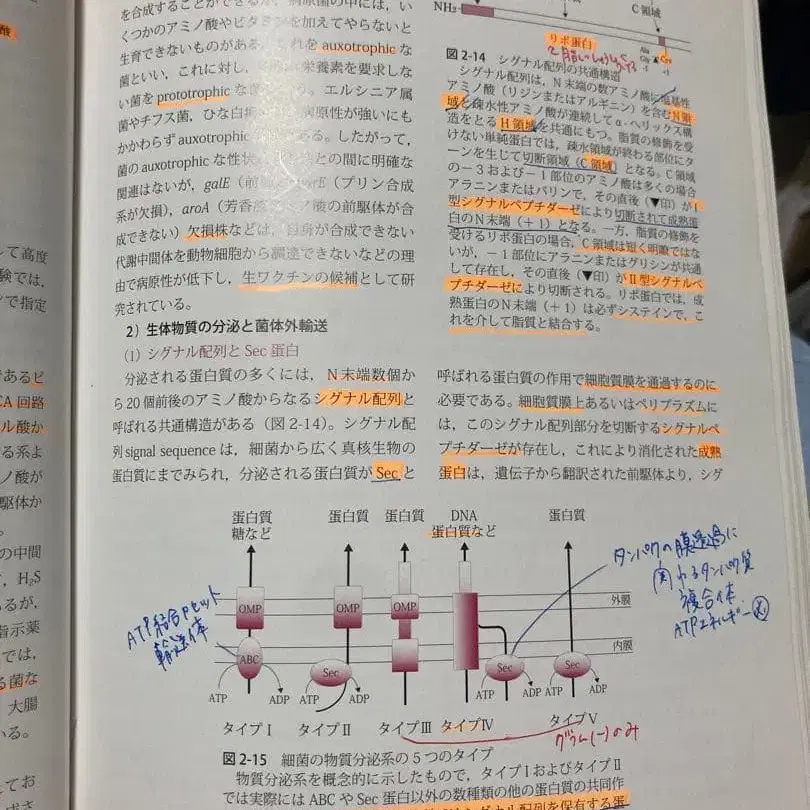 を合成することができるが，病原菌の中には，い
くつかのアミノ酸やビタミンを加えてやらないと
生育できないものがある．これを auxotrophic な
菌といい，これに対し，栄養素を要求しな
い菌を prototrophic な
菌やチフス菌，病原性が強いにも
かかわらず auxotrophic ある．したがって，
菌の auxotrophic な性状 との間に明確な
関連はないが，galE （プリン合成
系が欠損），aroA （芳香 酸の前駆体が合
成できない）欠損株などは，自身が合成できない
代謝中間体を動物細胞から調達できないなどの理
由で病原性が低下し，生ワクチンの候補として研
究されている．
2）生体物質の分泌と菌体外輸送
（1）シグナル配列と Sec 蛋白
分泌される蛋白質の多くには，N 末端数個か
ら 20 個前後のアミノ酸からなるシグナル配列と
呼ばれる共通構造がある（図 2-14）．シグナル配
列 signal sequence は，細菌から広く真核生物の
蛋白質にまでみられ，分泌される蛋白質が Sec と
NH₂
C 領域
リポ蛋白
Ala
Gly
Cys
-1
+1
図 2-14 シグナル配列の共通構造
シグナル配列は，N 末端の数アミノ酸に塩基性
アミノ酸（リジンまたはアルギニン）を含む N 領
域と疎水性アミノ酸が連続してα-ヘリックス構
造をとる H 領域を共通にもつ．脂質の修飾を受
けない単純蛋白では，疎水領域が終わる部位にタ
ーンを生じて切断領域（C 領域）となる．C 領域
の－3 および－1 部位のアミノ酸は多くの場合
アラニンまたはバリンで，その直後（▼印）が I
型シグナルペプチダーゼにより切断されて成熟蛋
白の N 末端（＋1）となる．一方，脂質の修飾を
受けるリポ蛋白の場合，C 領域は短く明瞭ではな
いが，－1 部位にアラニンまたはグリシンが共通
して存在し，その直後（▼印）が II 型シグナルペ
プチダーゼにより切断される．リポ蛋白では，成
熟蛋白の N 末端（＋1）は必ずシステインで，こ
れを介して脂質と結合する．
呼ばれる蛋白質の作用で細胞質膜を通過するのに
必要である．細胞質膜上あるいはペリプラズムに
は，このシグナル配列部分を切断するシグナルペ
プチダーゼが存在し，これにより消化された成熟
蛋白は，遺伝子から翻訳された前駆体より，シグ
蛋白質 蛋白質 蛋白質 DNA 蛋白質
糖など 蛋白質など
OMP OMP OMP 外膜
内膜
ABC Sec Sec Sec
ATP ADP ATP ADP ATP ADP ATP ADP
タイプ I タイプ II タイプ III タイプ IV タイプ V
ATP結合カセット
輸送体
タンパクの膜透過に
関わるタンパク質
複合体
ATPエネルギー
グラム(－)のみ
図 2-15 細菌の物質分泌系の 5 つのタイプ
物質分泌系を概念的に示したもので，タイプ I およびタイプ II
では実際には ABC や Sec 蛋白以外の数種類の他の蛋白質の共同作
シグナル配列を保有する蛋
酸
して高度
験では，
で指定
であるピ
CA 回路
ル酸か
る系よ
ノ酸が
駆体か
の中間
，H₂S
るが，
指示薬
では，
る菌な
大腸
いる．
てお